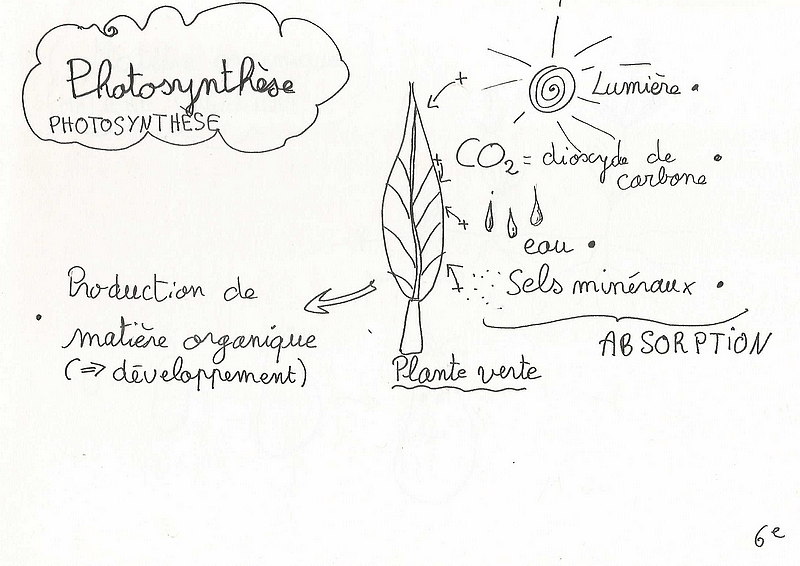 Photosynthèse
PHOTOSYNTHÈSE
Lumière
CO2 = dioxyde de
carbone
eau
Sels minéraux
ABSORPTION
Production de
matière organique
(⇒ développement)
Plante verte
6e